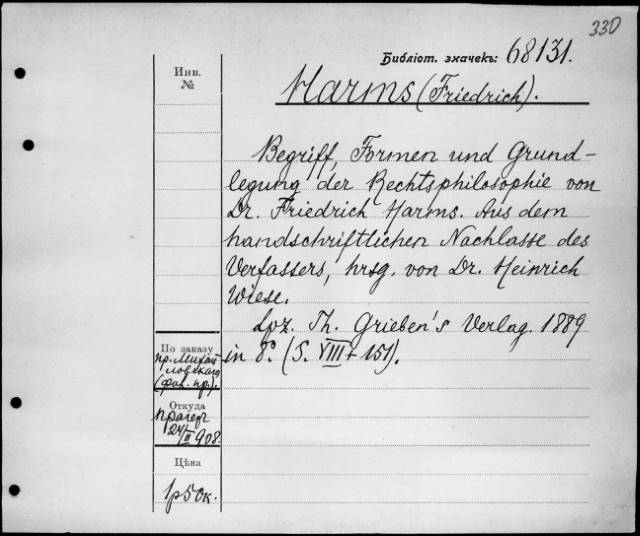 330
Библіот. значекъ: 68131.
Инв.
№
Harms (Friedrich).
Begriff, Formen und Grund-
legung der Rechtsphilosophie von
Dr. Friedrich Harms. Aus dem
handschriftlichen Nachlasse des
Verfassers, hrsg. von Dr. Heinrich
Wiese.
Lpz. Th. Grieben's Verlag. 1889
in 8º. (S. VIII + 151).
По заказу
пр. Михай
ловскаго
(фил. пр.).
Откуда
Прагеръ
24/II 908.
Цѣна
1р50к.